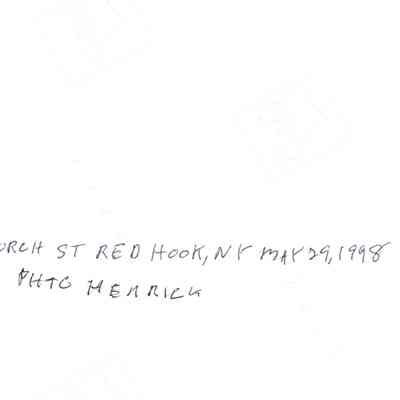 URCH ST RED HOOK, NY MAY 29, 1998
PHTG HERRICK